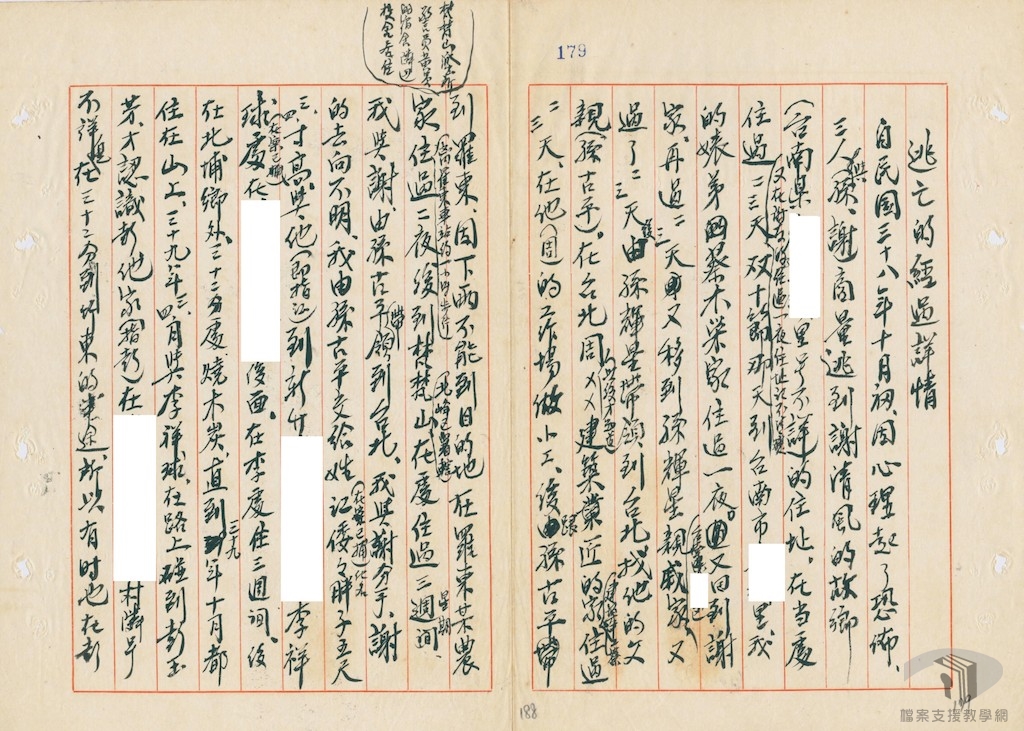 179
逃亡的經過詳情
自民國三十八年十月初、因心理起了恐怖、
三人(孫、謝)商量逃到謝清風的故鄉
(台南縣 里号不詳)的住址。在当處
住過二三天双十節那天到台南市 里我
的婊弟蔡木荣家住過一夜。又回到謝
家、再過二三天後又移到孫輝星親戚家、又
過了二三天由孫輝星帶領到台北找他的父
親(孫古平)。在台北周乂乂建築業匠的家住過
二三天、在他(周)的工作場做小工、後跟孫古平帶
到羅東、因下雨不能到目的地在羅東某農
家住過二夜後到梵梵山在處住過三週間、
我與謝、由孫古平帶領到台北、我與謝分手、謝
的去向不明、我由孫古平交給姓江矮々胖子五尺
三、四寸高與他(即指江)到新竹 李祥
球處在 後面。在李處住三週間。後
在北埔鄉外、三十二分處燒木炭、直到三九年十月都
住在山上、三十九年三、四月與李祥球、在路上碰到彭玉
芳、才認識彭他家(指彭)在 村隣号
不詳、在三十二分到竹東的半途、所以有时也在彭
188
檔案支援教學網